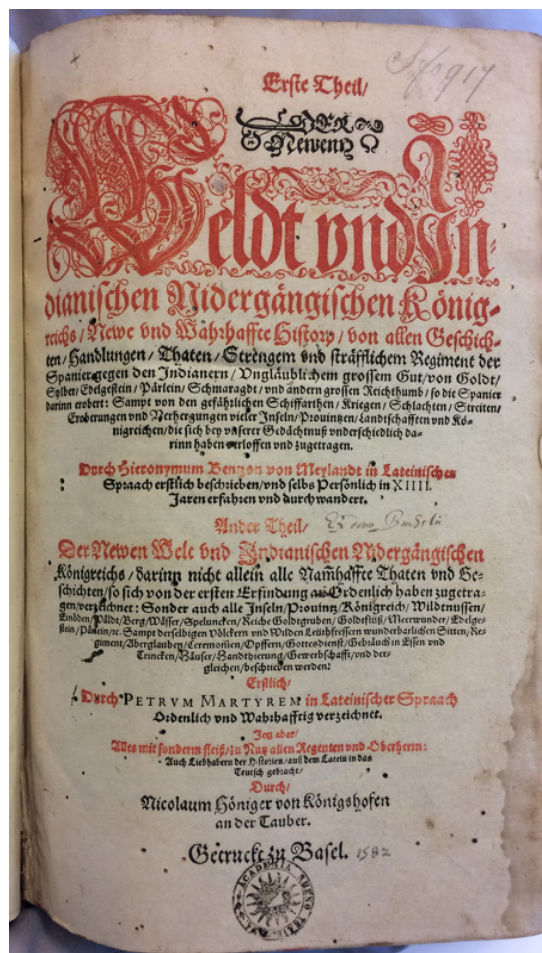 Sfo 917
Erste Theil/
DER
Newenn
Weldt vnd In-
dianischen Nidergängischen König-
reichs/ Newe vnd Wahrhaffte History/ von allen Geschich-
ten/ Handlungen/ Thaten/ Strengem vnd sträfflichem Regiment der
Spanier gegen den Indianern/ Vngläublichem grossem Gut/ von Goldt/
Sylber/ Edelgestein/ Pärlein/ Schmaragdt/ vnd andern grossen Reichthumb/ so die Spanier
darinn erobert: Sampt von den gefährlichen Schiffarthen/ Kriegen/ Schlachten/ Streiten/
Eroberungen vnd Verhergungen vieler Inseln/ Prouintzen/ Landtschafften vnd Kö-
nigreichen/ die sich bey vnserer Gedächtnuß vnderschiedlich da-
rinn haben verloffen vnd zugetragen.
Durch Hieronymum Bentzon von Meylandt in Lateinischer
Spraach erstlich beschrieben/ vnd selbs Persönlich in XIIII.
Jaren erfahren vnd durchwandert.
Ander Theil/
Der Newen Welt vnd Indianischen Nidergängischen
Königreichs/ darinn nicht allein alle Nam̃haffte Thaten vnd Ge-
schichten/ so sich von der ersten Erfindung an Ordenlich haben zugetra-
gen/ verzeichnet: Sonder auch alle Inseln/ Prouintz/ Königreich/ Wildtnussen/
Einöden/ Wäldt/ Berg/ Wässer/ Speluncken/ Reiche Goldtgruben/ Goldtflüß/ Meerwunder/ Edelge-
stein/ Pärlein/ ꝛc. Sampt derselbigen Völckern vnd Wilden Leuthfressern wunderbarlichen Sitten/ Re-
giment/ Aberglauben/ Ceremonien/ Opffern/ Gottesdienst/ Gebräuch in Essen vnd
Trincken/ Häuser/ Handthierung/ Gewerbschafft/ vnd der-
gleichen/ beschrieben werden:
Erstlich/
Durch PETRVM MARTYREM in Lateinischer Spraach
Ordenlich vnd Wahrhafftig verzeichnet.
Jetz aber/
Alles mit sonderm fleiß/ zu Nutz allen Regenten vnd Oberherrn:
Auch Liebhabern der Historien/ auß dem Latein in das
Teutsch gebracht/
Durch/
Nicolaum Höniger von Königshofen
an der Tauber.
Getruckt zu Basel. 1582
ACADEMIA